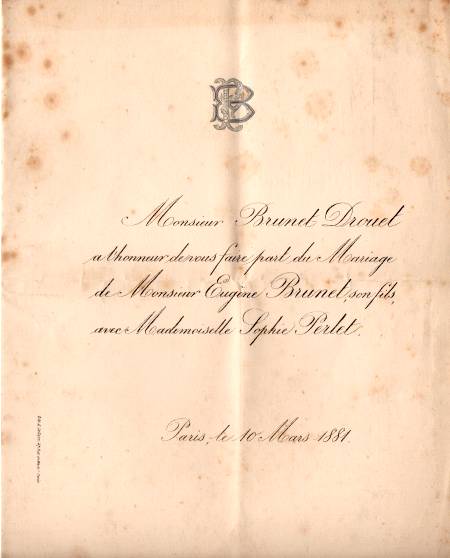 Monsieur Brunet Drouet
a l'honneur de vous faire part du Mariage
de Monsieur Eugène Brunet, son fils,
avec Mademoiselle Sophie Perlet.
Paris, le 10 Mars 1881.